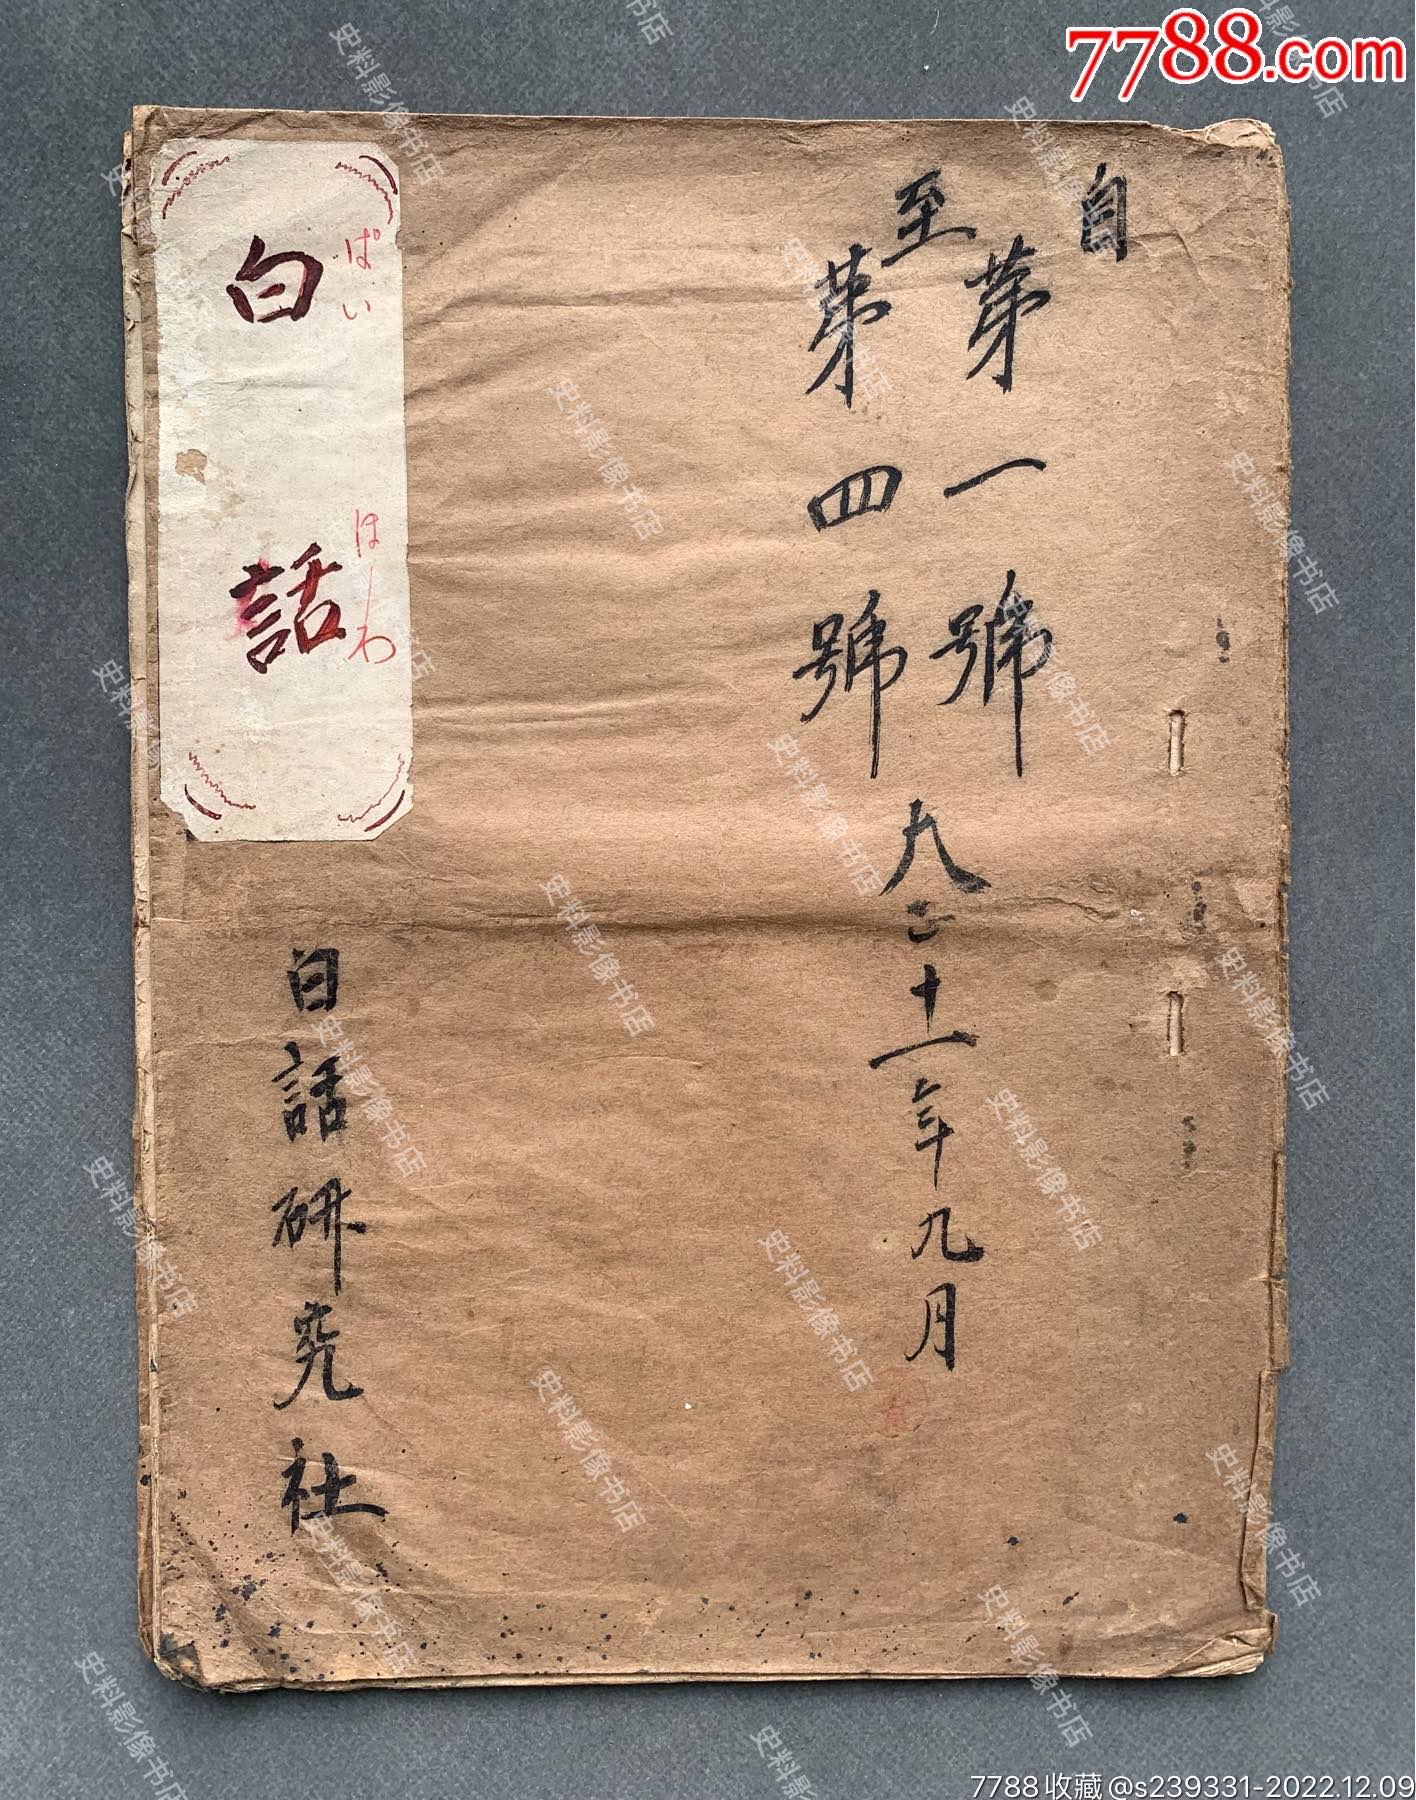 7788.com
自
第一號
至
第四號
大正十一年九月
白話
ぱい
はーわ
白話研究社
史料影像书店
7788收藏@s239331-2022.12.09